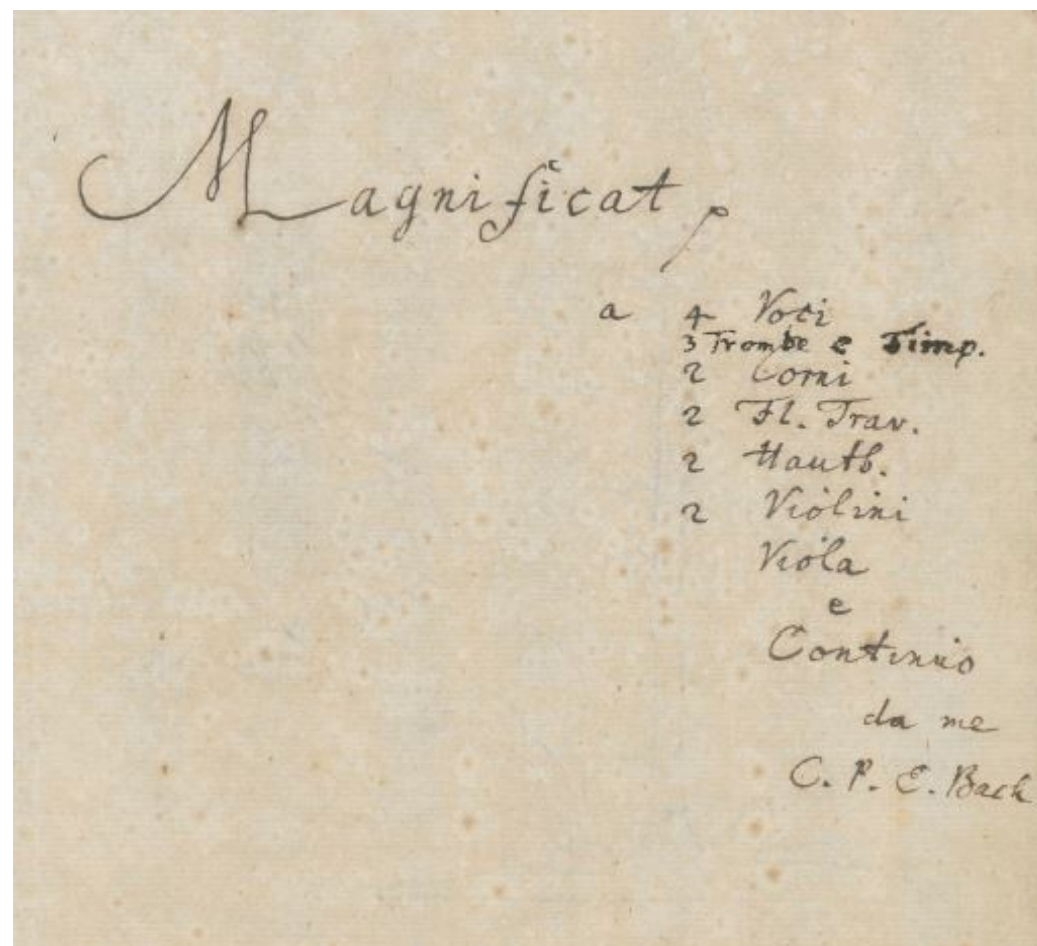 Magnificat,
a 4 Voci
3 Trombe e Timp.
2 Corni
2 Fl. Trav.
2 Hautb.
2 Violini
Viola
e
Continuo
da me
C. P. E. Bach